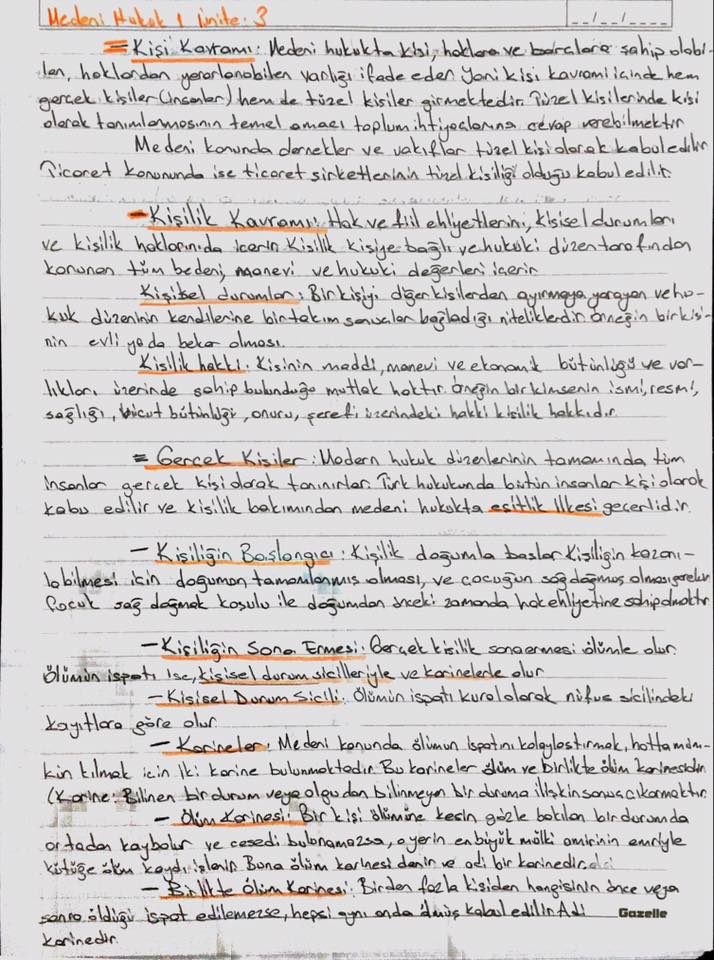 Medeni Hukuk 1 Ünite: 3
__/__/____
= Kişi Kavramı: Medeni hukukta kişi, haklara ve borçlara sahip olabi-
len, haklardan yararlanabilen varlığı ifade eder. Yani kişi kavramı içinde hem
gerçek kişiler (insanlar) hem de tüzel kişiler girmektedir. Tüzel kişilerinde kişi
olarak tanımlamasının temel amacı toplum ihtiyaçlarına cevap verebilmektir
Medeni kanunda dernekler ve vakıflar tüzel kişi olarak kabul edilir
Ticaret kanununda ise ticaret şirketlerinin tüzel kişiliği olduğu kabul edilir.
- Kişilik Kavramı: Hak ve fiil ehliyetlerini, kişisel durumları
ve kişilik haklarınıda içerir. Kişilik kişiye bağlı ve hukuki düzen tarafından
korunan tüm bedeni, manevi ve hukuki değerleri içerir
Kişisel durumlar: Bir kişiyi diğer kişilerden ayırmaya yarayan ve hu-
kuk düzeninin kendilerine bir takım sonuçlar bağladığı niteliklerdir. örneğin bir kişi-
nin evli ya da bekar olması.
Kişilik hakkı: Kişinin maddi, manevi ve ekonomik bütünlüğü ve var-
lıkları üzerinde sahip bulunduğu mutlak haktır. örneğin bir kimsenin ismi, resmi,
sağlığı, vücut bütünlüğü, onuru, şerefi üzerindeki hakkı kişilik hakkıdır.
= Gerçek Kişiler: Modern hukuk düzenlerinin tamamında tüm
insanlar gerçek kişi olarak tanınırlar. Türk hukukunda bütün insanlar kişi olarak
kabu edilir ve kişilik bakımından medeni hukukta eşitlik ilkesi geçerlidir.
- Kişiliğin Başlangıcı: Kişilik doğumla başlar. Kişiliğin kazanı-
labilmesi için doğumun tamamlanmış olması, ve çocuğun sağ doğmuş olması gerekir
Çocuk sağ doğmak koşulu ile doğumdan önceki zamanda hak ehliyetine sahip olmaktır
- Kişiliğin Sona Ermesi: Gerçek kişilik sona ermesi ölümle olur.
Ölümün ispatı ise, kişisel durum sicilleriyle ve karinelerle olur
- Kişisel Durum Sicili: Ölümün ispatı kural olarak nüfus sicilindeki
kayıtlara göre olur
- Karineler: Medeni kanunda ölümün ispatını kolaylaştırmak, hatta müm-
kün kılmak için iki karine bulunmaktadır. Bu karineler ölüm ve birlikte ölüm karinesidir.
(Karine: Bilinen bir durum veya olgudan bilinmeyen bir duruma ilişkin sonuç çıkarmaktır.
- Ölüm Karinesi: Bir kişi ölümüne kesin gözle bakılan bir durumda
ortadan kaybolur ve cesedi bulunamazsa, o yerin en büyük mülki amirinin emriyle
kütüğe ölüm kaydı işlenir. Buna ölüm karinesi denir ve adi bir karinedir.
- Birlikte Ölüm Karinesi: Birden fazla kişiden hangisinin önce veya
sonra öldüğü ispat edilemezse, hepsi aynı anda ölmüş kabul edilir. Adi
Gazelle
karinedir.